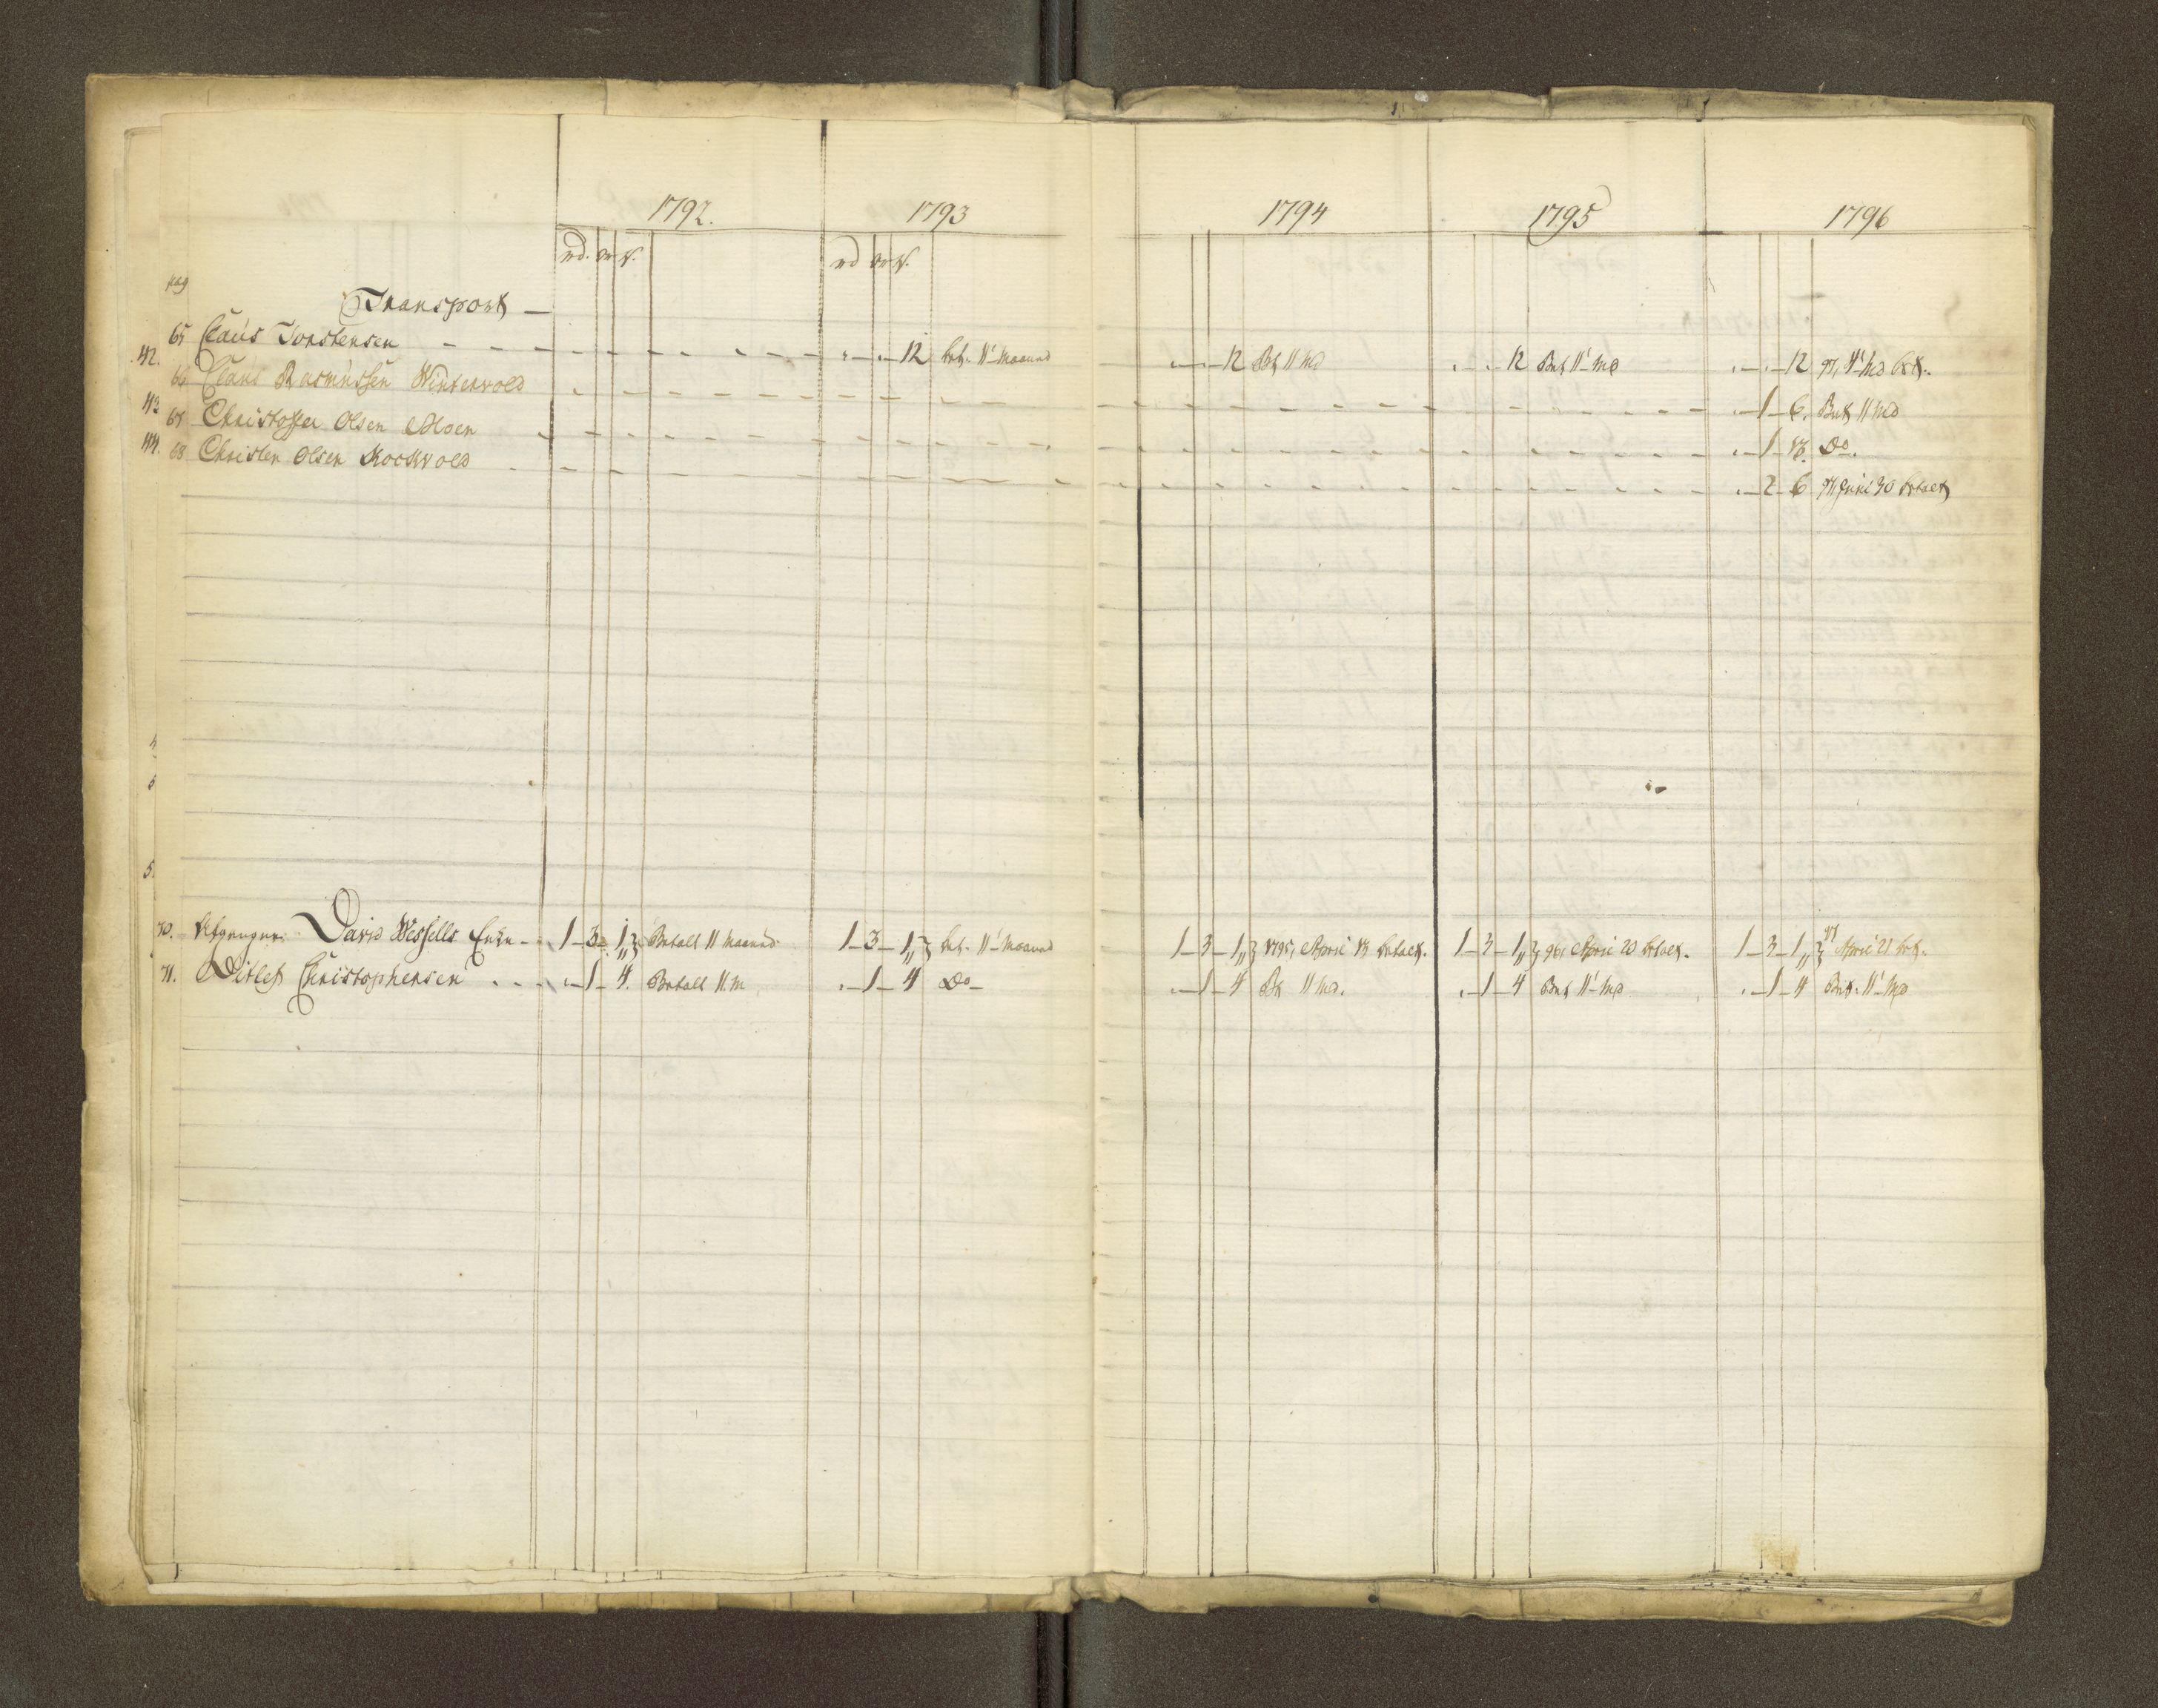 1792. 1793 1794 1795 1796
rd. ort ß. rd ort ß.
pag
Transport —
65 Claus Torstensen - - - - 12 bet. 11' Maaned - - 12 Bt 11 Md - - 12 Bet 11' Md - - 12 97, 11' Md bet.
42. 66 Claus Rasmussen Wintervold - - - - 1 - 6. Bet 11 Md
43 67 Christoffer Olsen Moen - - - - 1 - 18. Do.
44. 68 Christen Olsen Kockvold - - - - 2 - 6 97, Juni 30 betalt
70. Afgangne David Wessells Enke - - 1 - 3 - 1 „ } Betalt 11 Maaned 1 - 3 - 1 „ } bet. 11' Maaned 1 - 3 - 1 „ } 1795, April 18 betalt. 1 - 3 - 1 „ } 96, April 20 betalt. 1 - 3 - 1 „ } 97 April 21 bet.
71. Ditlef Christophersen . . - - 1 - 4. Betalt 11. M - 1 - 4 Do - - 1 - 4 Bt 11 Md. - 1 - 4 Bet 11' Md - 1 - 4 Bet. 11' Md